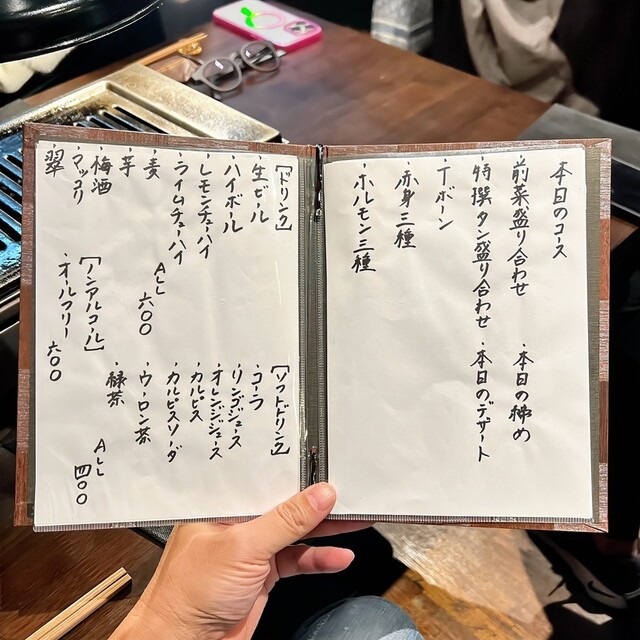 本日のコース
・前菜盛り合わせ
・特撰タン盛り合わせ
・Tボーン
・赤身三種
・ホルモン三種
・本日の締め
・本日のデザート
[ドリンク]
・生ビール
・ハイボール
・レモンチューハイ
・ライムチューハイ
・麦
・芋
・梅酒
・マッコリ
・翠
ALL 六〇〇
[ノンアルコール]
・オールフリー
六〇〇
[ソフトドリンク]
・コーラ
・リンゴジュース
・オレンジジュース
・カルピス
・カルピスソーダ
・ウーロン茶
・緑茶
ALL 四〇〇